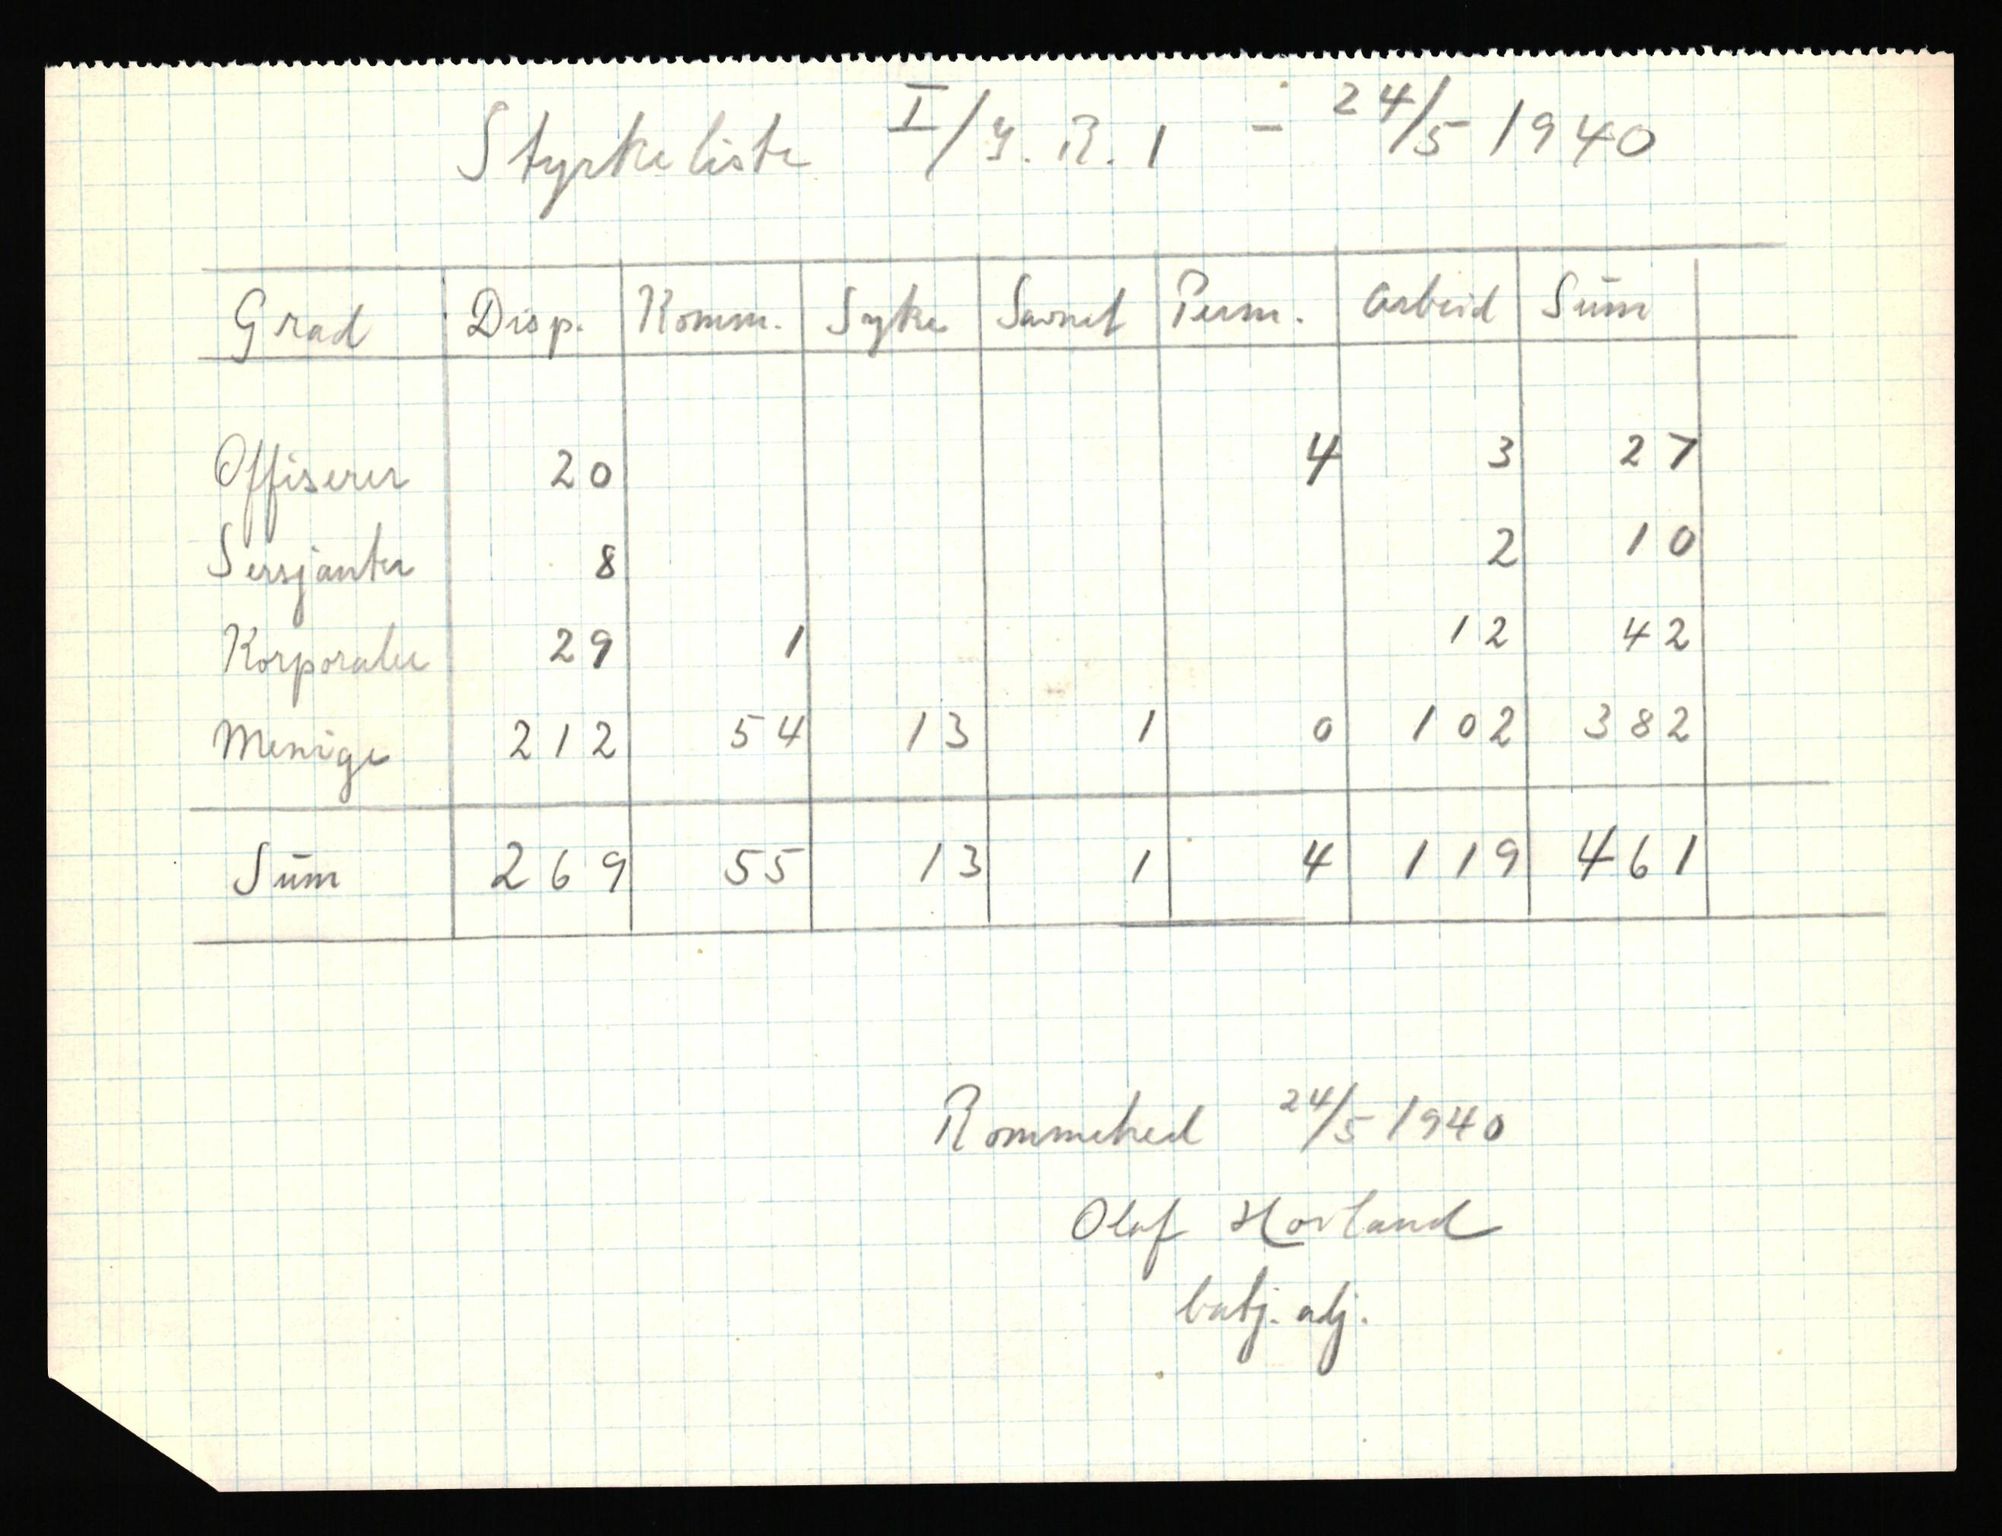 Styrkeliste I/I.R. 1 - 24/5 1940
Grad Disp. Komm. Syke Savnet Perm. Arbeid Sum
Offiserer 20 4 3 27
Sersjanter 8 2 10
Korporaler 29 1 12 42
Menige 212 54 13 1 0 102 382
Sum 269 55 13 1 4 119 461
Rommehed 24/5 1940
Olaf Hovland
batj. adj.